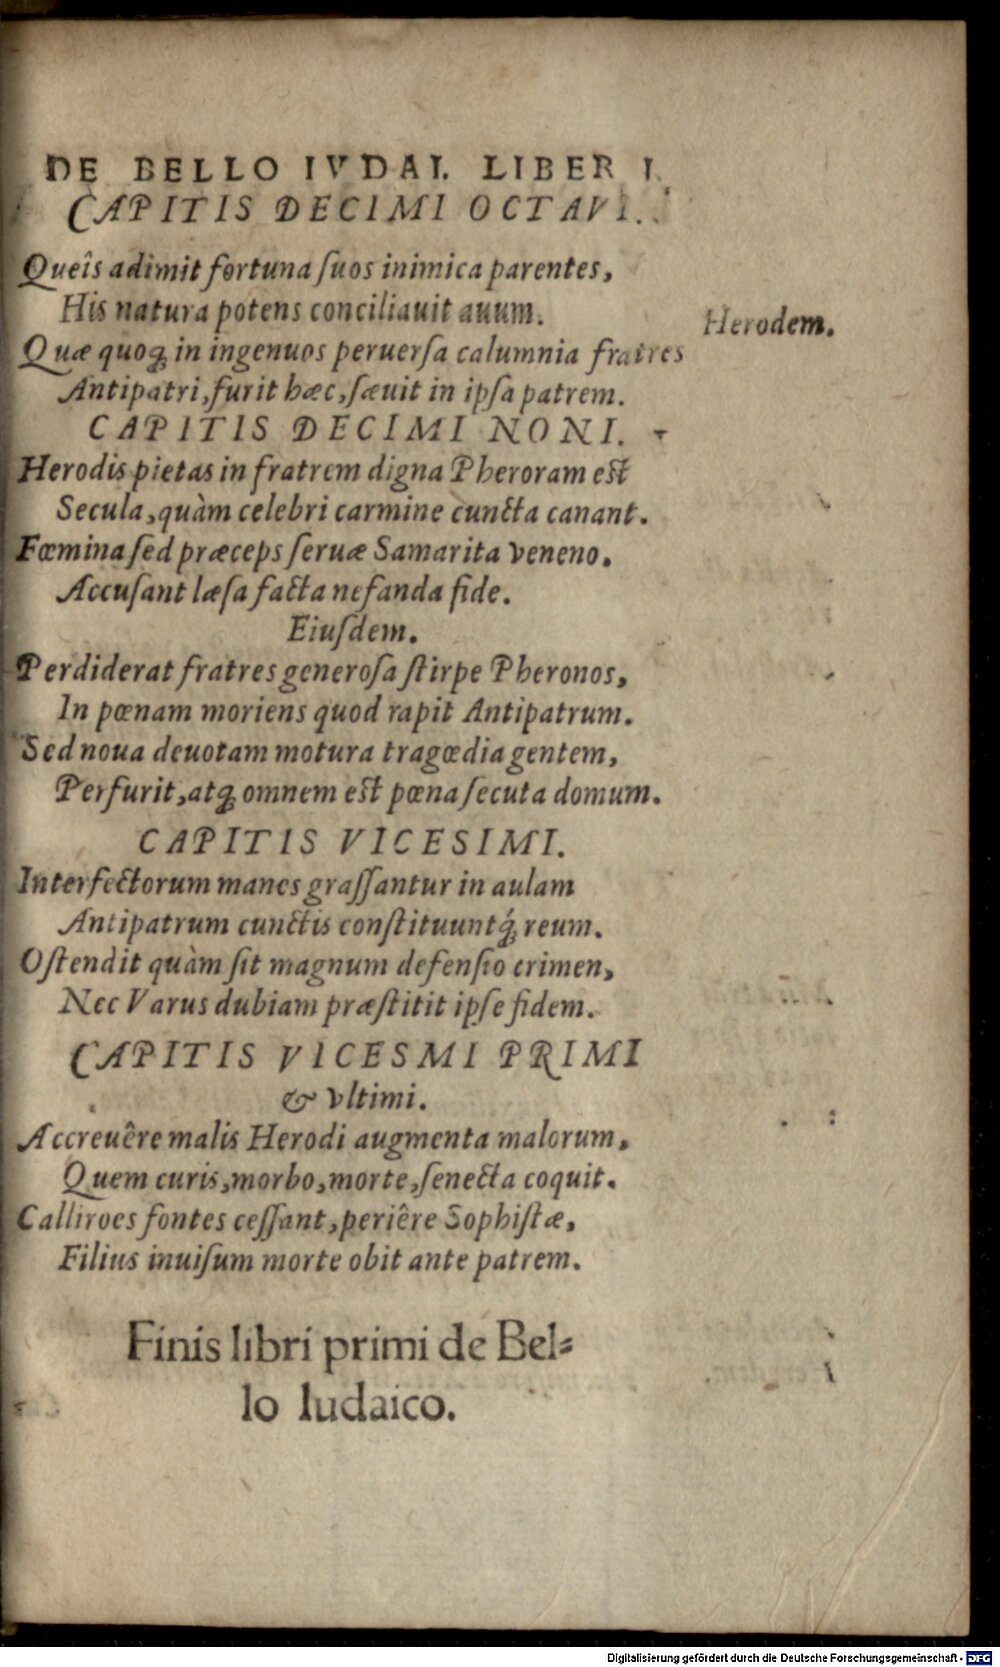 DE BELLO IVDAI. LIBER I.
CAPITIS DECIMI OCTAVI.
Queîs adimit fortuna ſuos inimica parentes,
His natura potens conciliauit auum.
Herodem.
Quæ quoqꝫ in ingenuos peruerſa calumnia fratres
Antipatri, furit hæc, ſæuit in ipſa patrem.
CAPITIS DECIMI NONI.
Herodis pietas in fratrem digna Pheroram est
Secula, quàm celebri carmine cuncta canant.
Fœmina ſed præceps ſeruæ Samarita veneno.
Accuſant læſa facta nefanda fide.
Eiuſdem.
Perdiderat fratres generoſa ſtirpe Pheronos,
In pœnam moriens quod rapit Antipatrum.
Sed noua deuotam motura tragœdia gentem,
Perfurit, atqꝫ omnem est pœna ſecuta domum.
CAPITIS VICESIMI.
Interfectorum manes graſſantur in aulam
Antipatrum cunctis conſtituuntqꝫ́ reum.
Oſtendit quàm ſit magnum defenſio crimen,
Nec Varus dubiam præſtitit ipſe fidem.
CAPITIS VICESMI PRIMI
& vltimi.
Accreuêre malis Herodi augmenta malorum,
Quem curis, morbo, morte, ſenecta coquit.
Calliroes fontes ceſſant, periêre Sophiſtæ,
Filius inuiſum morte obit ante patrem.
Finis libri primi de Bel=
lo Iudaico.
Digitalisierung gefördert durch die Deutsche Forschungsgemeinschaft - DFG